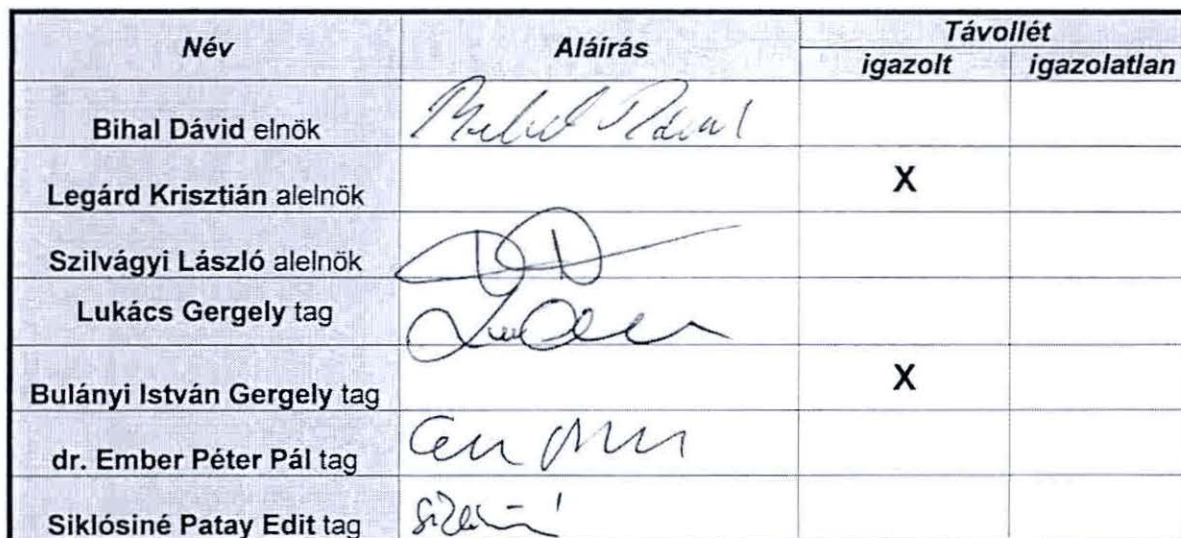 Név Aláírás Távollét
igazolt igazolatlan
Bihal Dávid elnök
Legárd Krisztián alelnök X
Szilvágyi László alelnök
Lukács Gergely tag
Bulányi István Gergely tag X
dr. Ember Péter Pál tag
Siklósiné Patay Edit tag